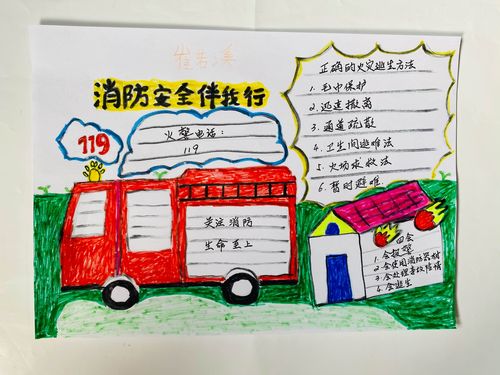 崔若溪
消防安全伴我行
119
火警电话：
119
正确的火灾逃生方法
1. 毛巾保护
2. 迅速撤离
3. 通道疏散
4. 卫生间避难法
5. 火场求救法
6. 暂时避难
关注消防
生命至上
四会
1. 会报警
2. 会使用消防器材
3. 会处理事故险情
4. 会逃生